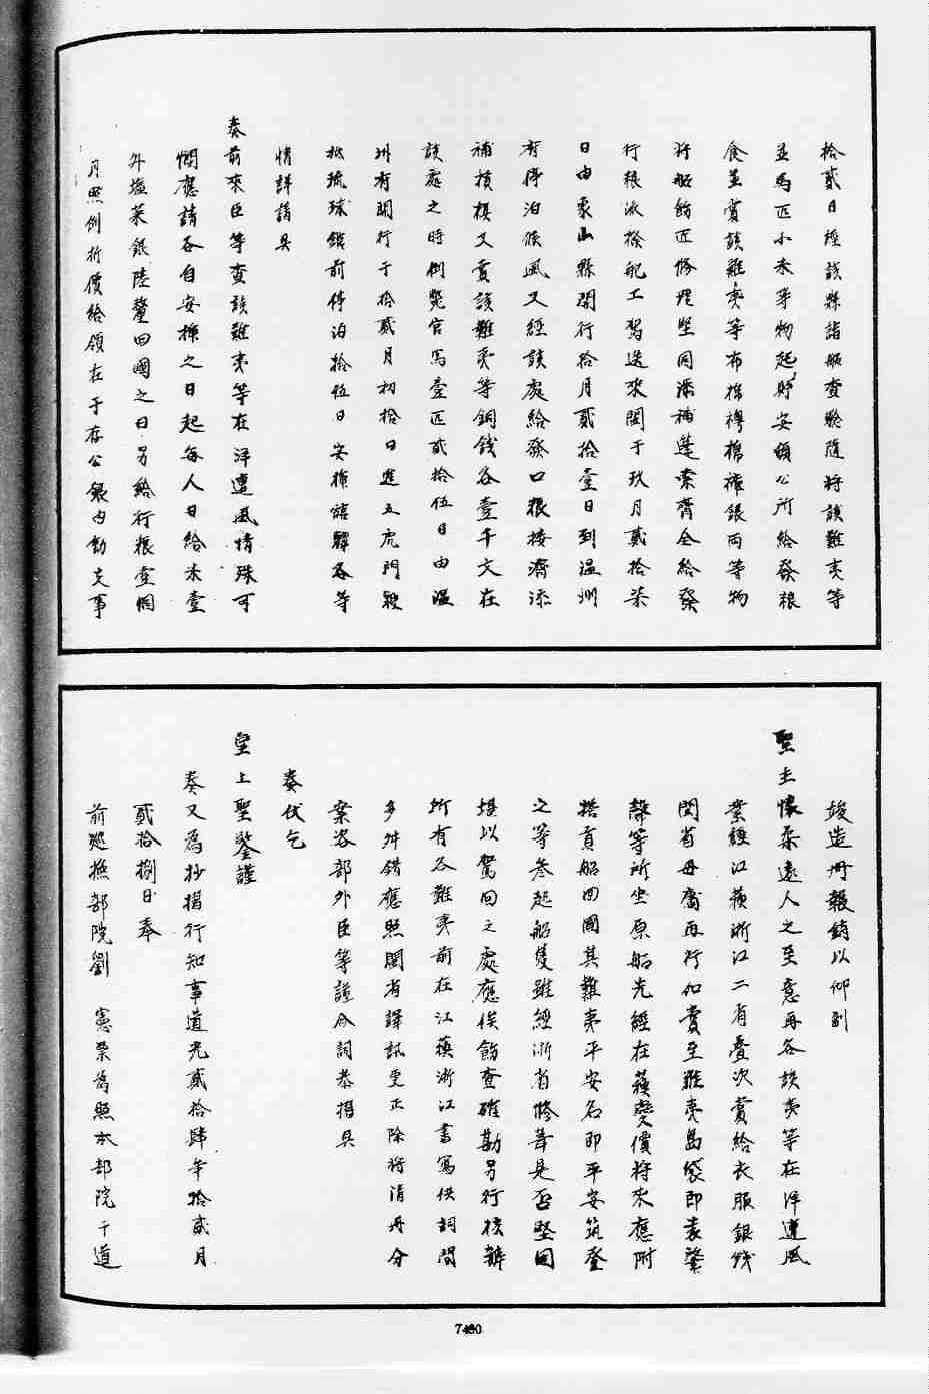 拾貳日經該縣詣船查驗隨將該難夷等
並馬匹小米等物起貯安頓公所給發粮
食並賞該難夷等布棉褥棉褲銀両等物
将船飭匠修理堅固添補蓬索齊全給發
行粮派撥舵工駕送來閩于玖月貳拾柒
日由象山縣開行拾月貳拾壹日到温州
有停泊候風又經該處給發口粮接濟添
補槓椇又賞該難夷等銅錢各壹千文在
該處之時倒斃官馬壹匹貳拾伍日由温
州有開行于拾貳月初拾日進五虎門
抵琉球館前停泊拾伍日安插舘驛各等
情詳請具
奏前來臣等查該難夷等在洋遭風情殊可
憫應請各自安插之日起每人日給米壹
升塩菜銀陸釐回國之日另給行粮壹個
月照例折價給領在于存公銀内動支事
竣造册報銷以仰副
聖主懷柔遠人之至意再各該夷等在洋遭風
業經江蘇浙江二省叠次賞給衣服銀錢
閩省毋庸再行加賞至難夷島袋即表
等所坐原船先經在蘇變價将來應附
搭貢船回國其難夷平安名即平安筑登
之等叁起船隻雖經浙省修葺是否堅固
堪以駕回之處應俟飭查確勘另行核辦
所有各難夷前在江蘇浙江書寫供詞間
多舛錯應照閩省譯訊更正除将清册分
案咨部外臣等謹合詞恭摺具
奏伏乞
皇上聖鑒謹
奏又為抄摺行知事道光貳拾肆年拾貳月
貳拾捌日奉
前廵撫部院劉　憲票為照本部院于道
7480